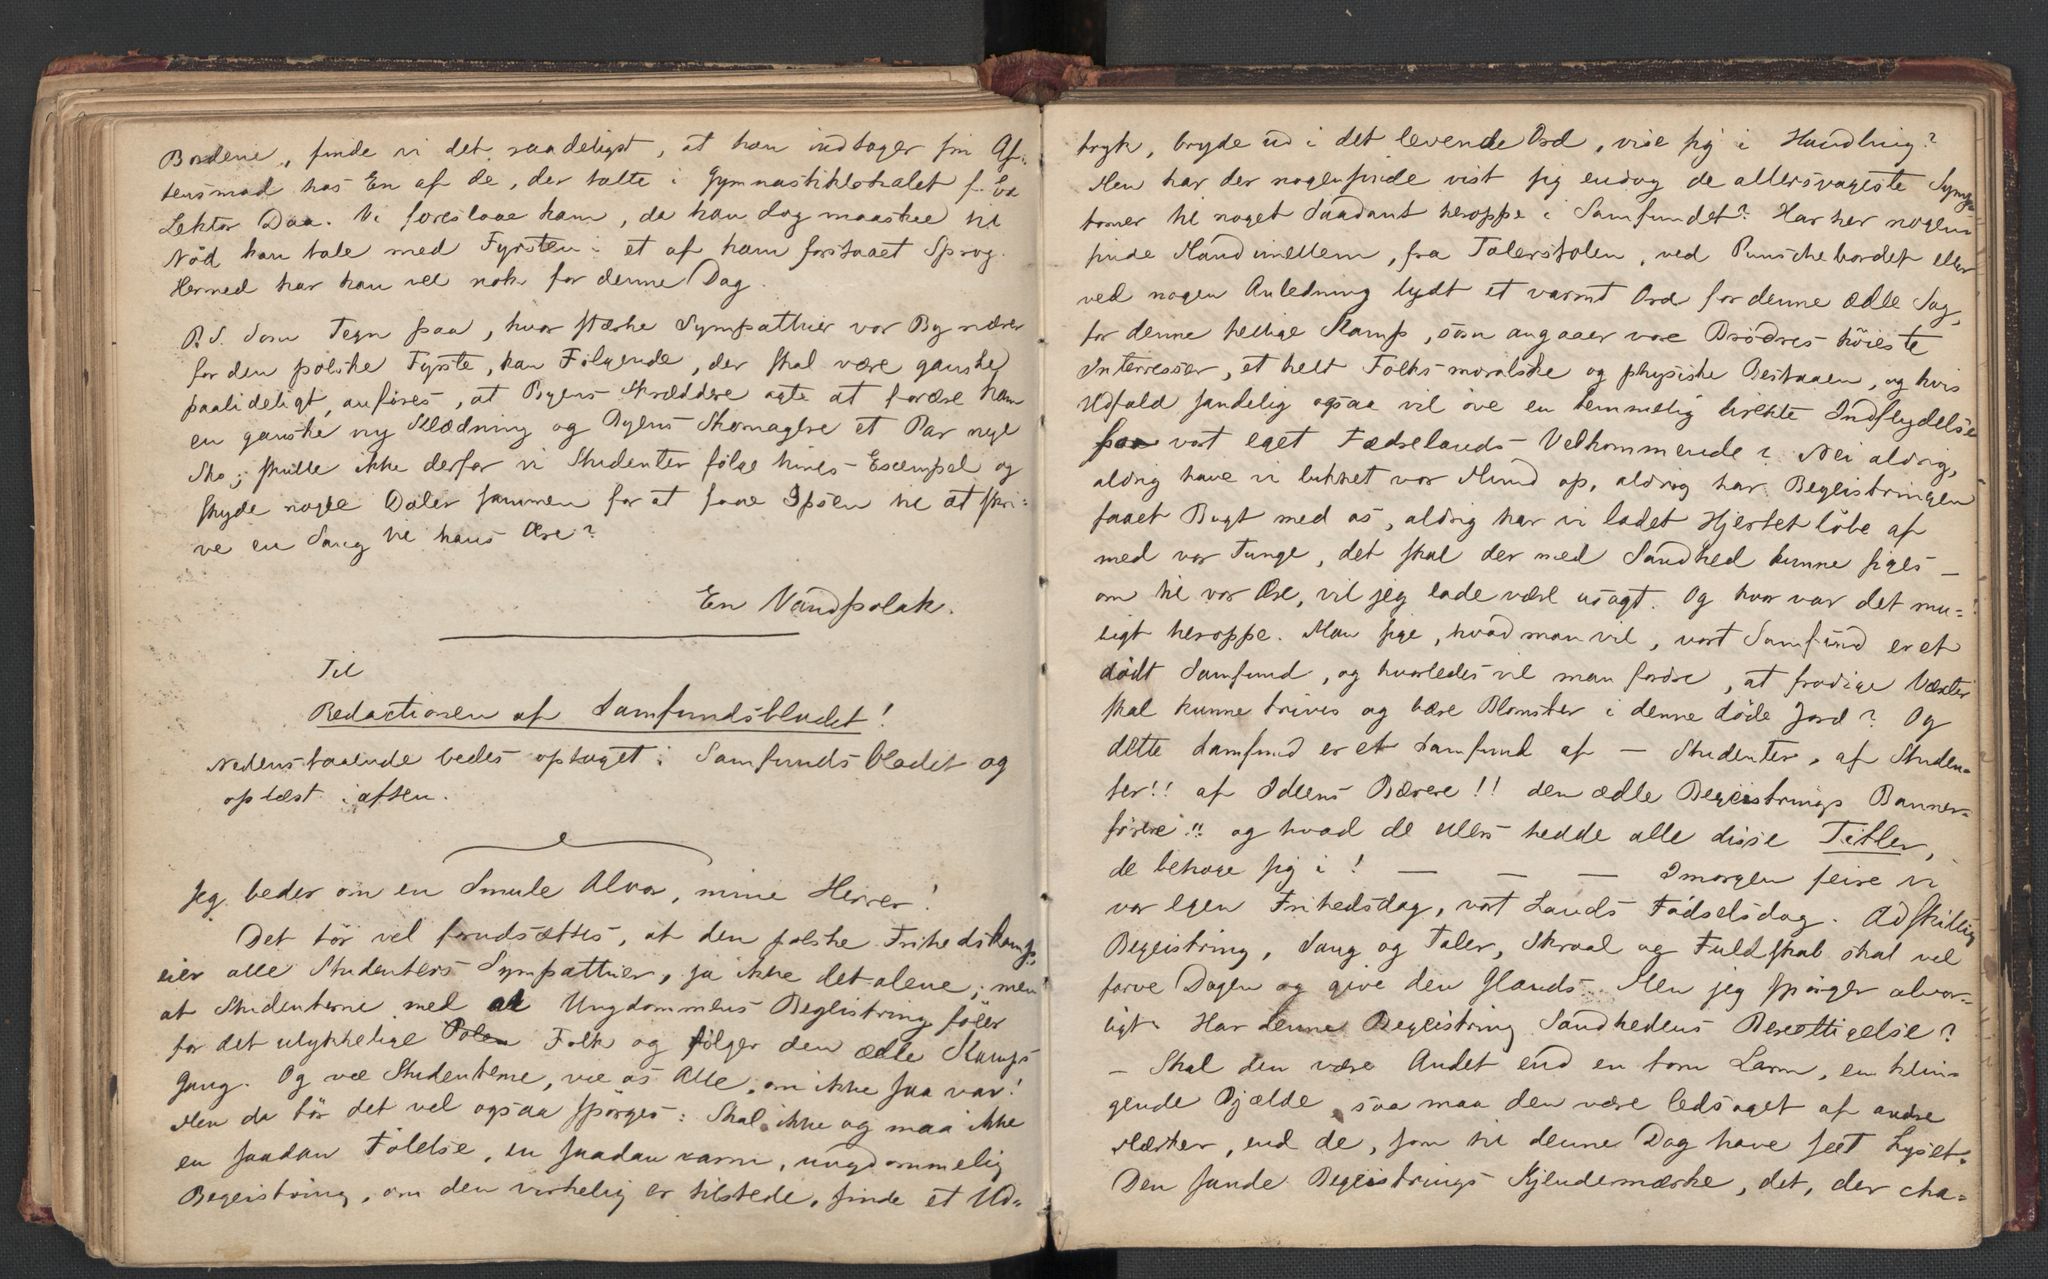 Bordene, finde vi det raadeligst, at han indtager sin Af-
tensmad hos En af de, der talte i Gymnastiklokalet f. Ex
Lektor Daa. Vi foreslaae ham, da han dog maaskee til
Nød kan tale med Fyrsten i et af ham forstaaet Sprog.
Hermed har han vel nok for denne Dag.
P.S. Som Tegn paa, hvor stærke Sympathier vor By nærer
for den polske Fyrste, kan Følgende, der skal være ganske
paalideligt, anføres, at Byens Skræddere agte at forære ham
en ganske ny Klædning og Byens Skomagere et Par nye
Sko; skulle ikke derfor vi Studenter følge hines Exempel og
skyde nogle Daler sammen for at faae Ipsen til at skri-
ve en Sang til hans Ære?
En Vandpolak.
Til
Redactionen af Samfundsbladet!
Nedenstaaende bedes optaget i Samfundsbladet og
oplæst iaften.
Jeg beder om en Smule Alvor, mine Herrer!
Det tør vel forudsættes, at den polske Frihedskamp
eier alle Studenters Sympathier, ja ikke det alene; men
at Studenterne med al Ungdommens Begeistring føler
for det ulykkelige Polen Folk og følger den ædle Kamps
Gang. Og vee Studenterne, vee os Alle, om ikke saa var!
Men da tør det vel ogsaa spørges: Skal ikke og maa ikke
en saadan Følelse, en saadan varm, ungdommelig
Begeistring, om den virkelig er tilstede, finde et Ud-
tryk, bryde ud i det levende Ord, vise sig i Handling?
Men har der nogensinde vist sig endog de allersvageste Symp-
tomer til noget Saadant heroppe i Samfundet? Har her nogen-
sinde Mand imellem, fra Talerstolen, ved Punschebordet eller
ved nogen Anledning lydt et varmt Ord for denne ædle Sag,
for denne hellige Kamp, som angaaer vore Brødres høieste
Interresser, et helt Folks moralske og physiske Bestaaen, og hvis
Udfald sandelig ogsaa vil øve en temmelig direkte Indflydelse
paa vort eget Fædrelands Velkommende? Nei aldrig,
aldrig have vi lukket vor Mund op, aldrig har Begeistringen
faaet Bugt med os, aldrig har vi ladet Hjertet løbe af
med vor Tunge, det skal der med Sandhed kunne siges –
om til vor Ære, vil jeg lade være usagt. Og hvor var det mu-
ligt heroppe. Man sige, hvad man vil, vort Samfund er et
dødt Samfund, og hvorledes vil man fordre, at frodige Væxter
skal kunne trives og bære Blomster i denne døde Jord? Og
dette Samfund er et Samfund af – Studenter, af Studen-
ter!! af Ideens Bærere!! den ædle Begeistrings Banner-
førere!! og hvad de ellers hedde alle disse Titler,
de behage sig i! — — — Imorgen feire vi
vor egen Frihedsdag, vort Lands Fødselsdag. Adskillig
Begeistring, Sang og Taler, Skraal og Fuldskab skal vel
farve Dagen og give den Glands. Men jeg spørger alvor-
ligt. Har denne Begeistring Sandhedens Berettigelse?
– Skal den være Andet end en tom Larm, en klin-
gende Bjælde, saa maa den være ledsaget af andre
Mærker, end de, som til denne Dag have seet Lyset.
Den sande Begeistrings Kjendemærke, det, der cha-